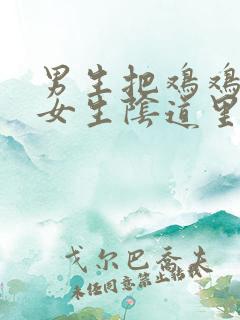 男生把鸡鸡
女生陰道里
戈尔巴乔夫
未经同意禁止转载